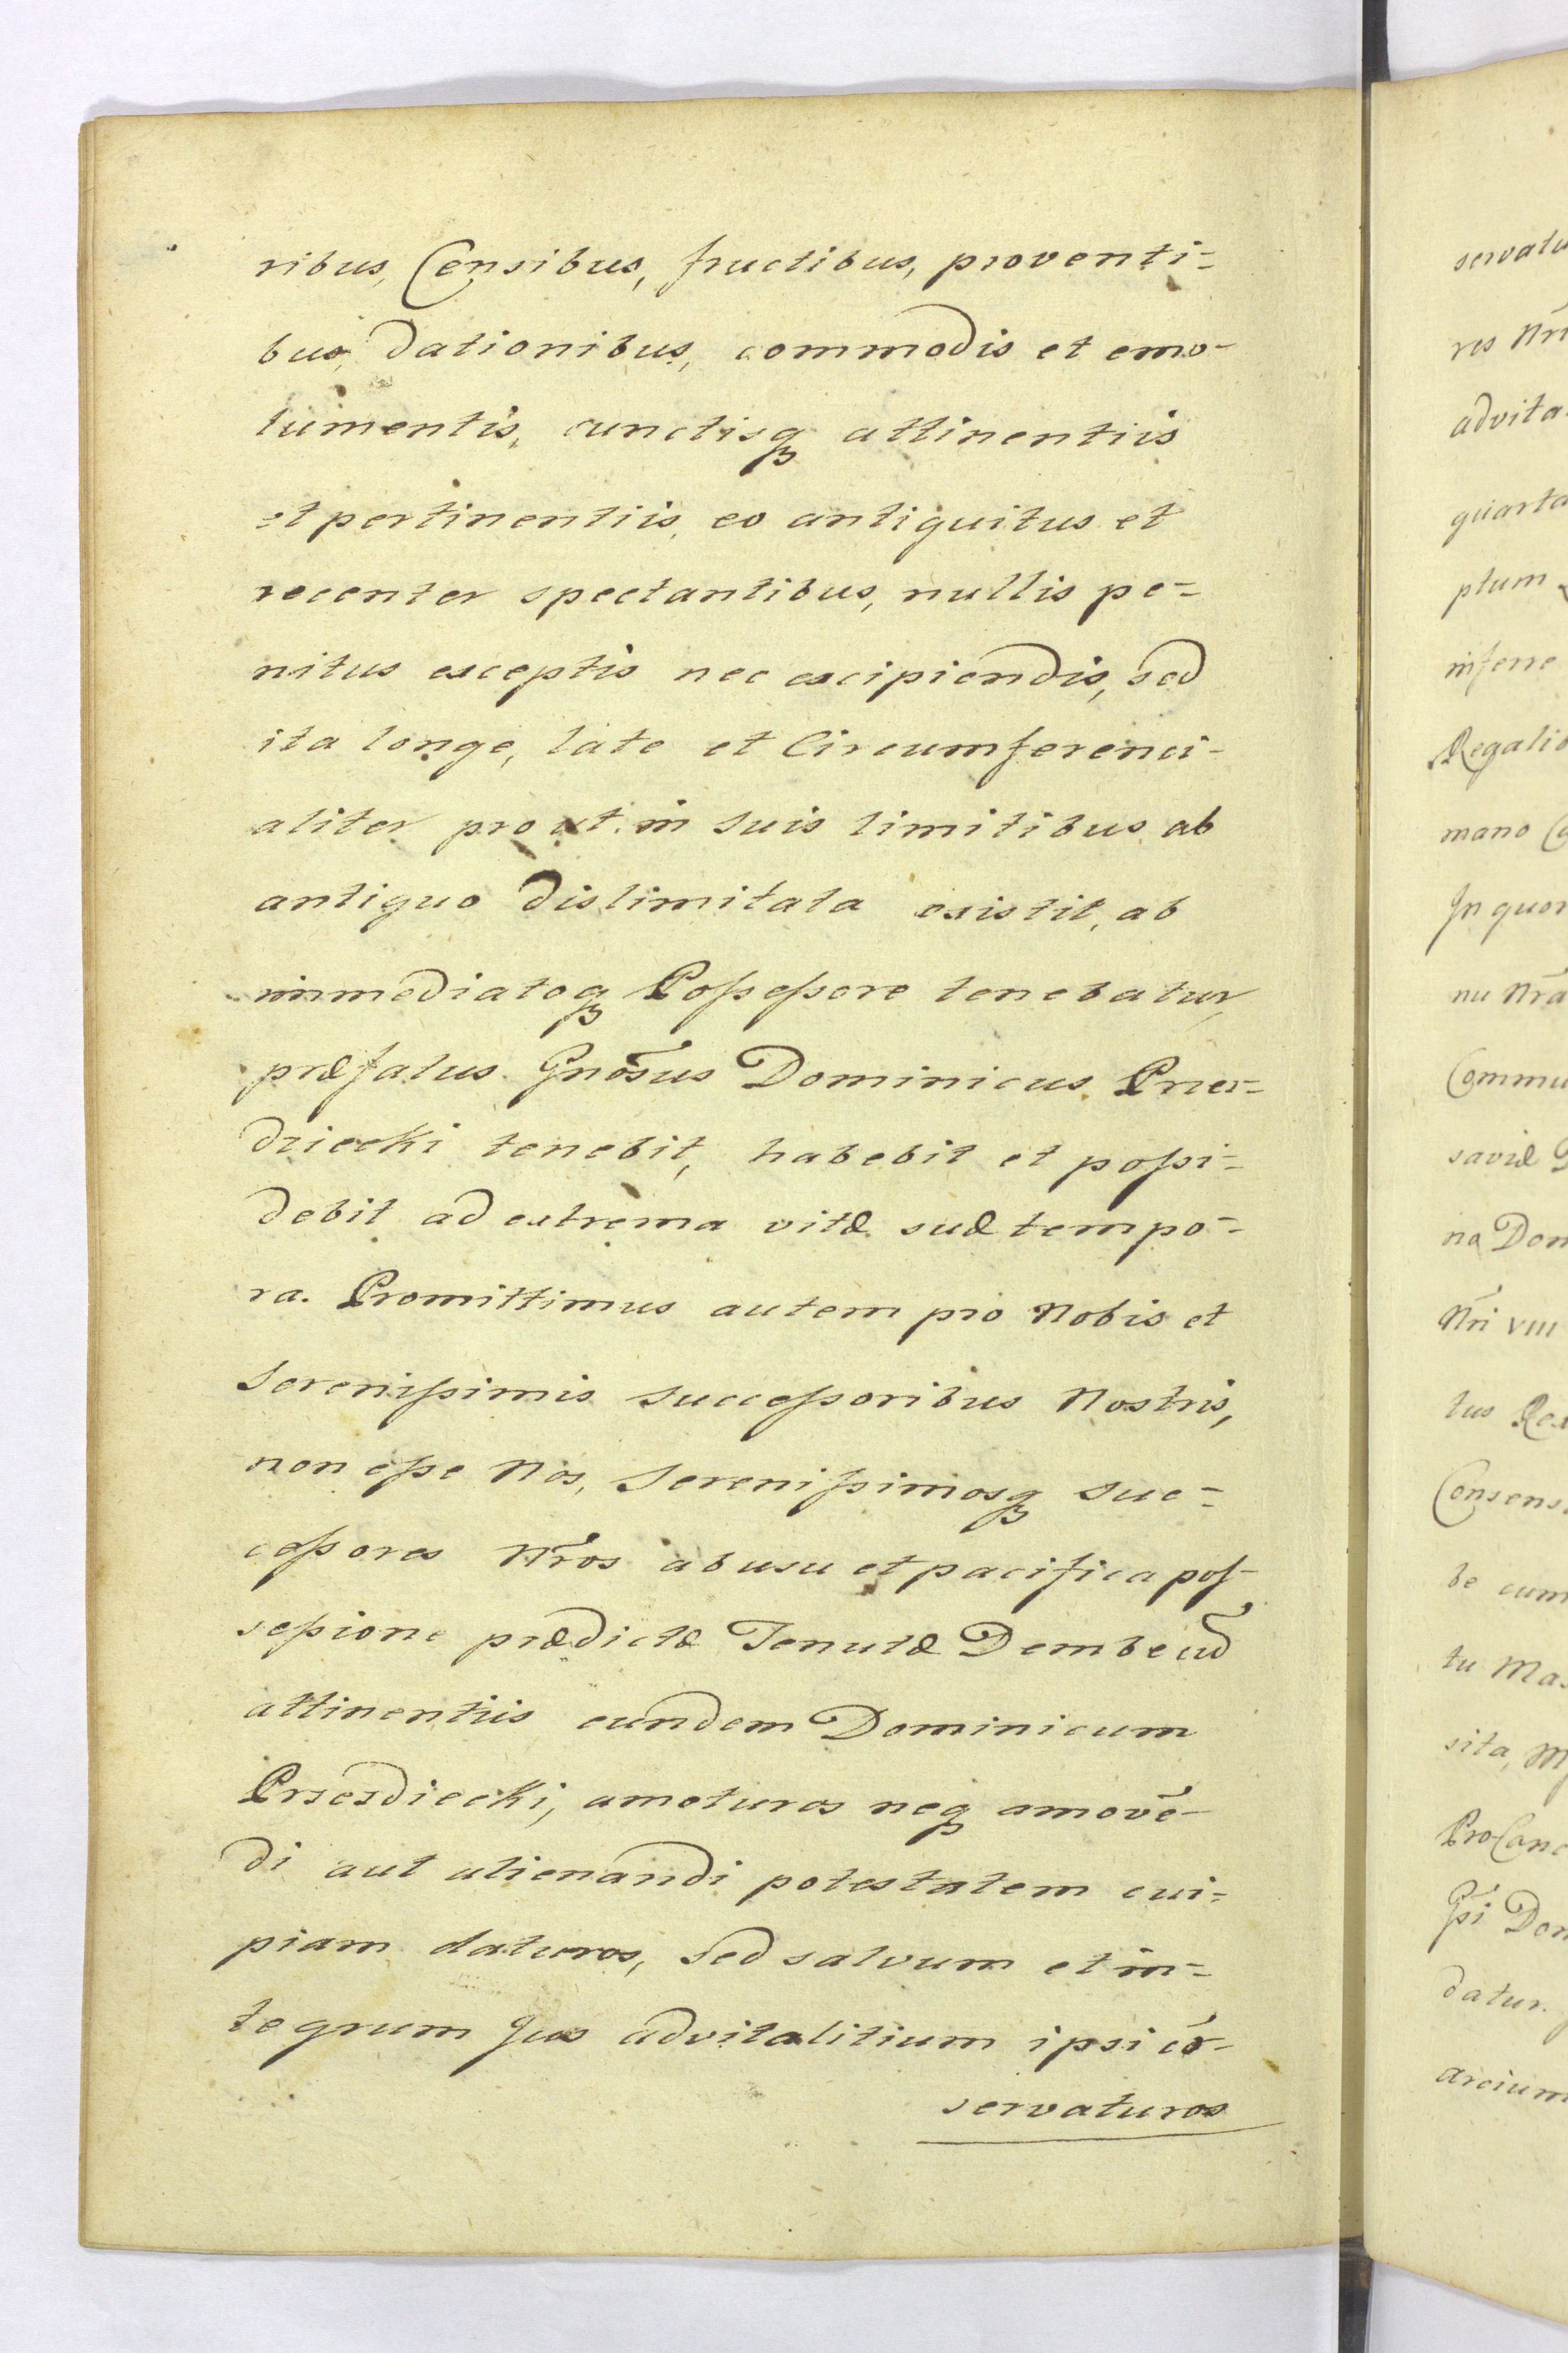 ribus, Censibus, fructibus, proventi=
bus, dationibus, commodis et emo-
lumentis, cunctisq attinentiis
et pertinentiis, eo antiquitus et
recenter spectantibus, nullis pe=
nitus exceptis nec excipiendis, sed
ita longe, late et Circumferenci-
aliter pro ut in suis limitibus ab
antiquo dislimitata existit, ab
immediatoq Possessore tenebatur,
præfatus Gnõsus Dominicus Przez=
dziecki tenebit, habebit et possi=
debit ad extrema vitæ suæ tempo=
ra. Promittimus autem pro Nobis et
Serenissimis Successoribus Nostris,
non esse Nos, Serenissimosq Suc=
cessores Nr̃os ab usu et pacifica pos-
sessione prædictæ Tenutæ Dembe cũ
attinentiis eundem Dominicum
Przezdiecki, amoturos neq amovẽ-
di aut alienandi potestatem cui=
piam daturos, Sed salvum et in=
tegrum Jus advitalitium ipsi cõ-
servaturos
servatu
res Nri
advita
quarta
ptum
inferre
Regalio
mano
In quor
nu Nra
Commu
saviæ
na Dom
Nri VIII
tus Rex
Consens
be cum
tu Mas
sita, M
ProCanc
Dom
datur.
arcium